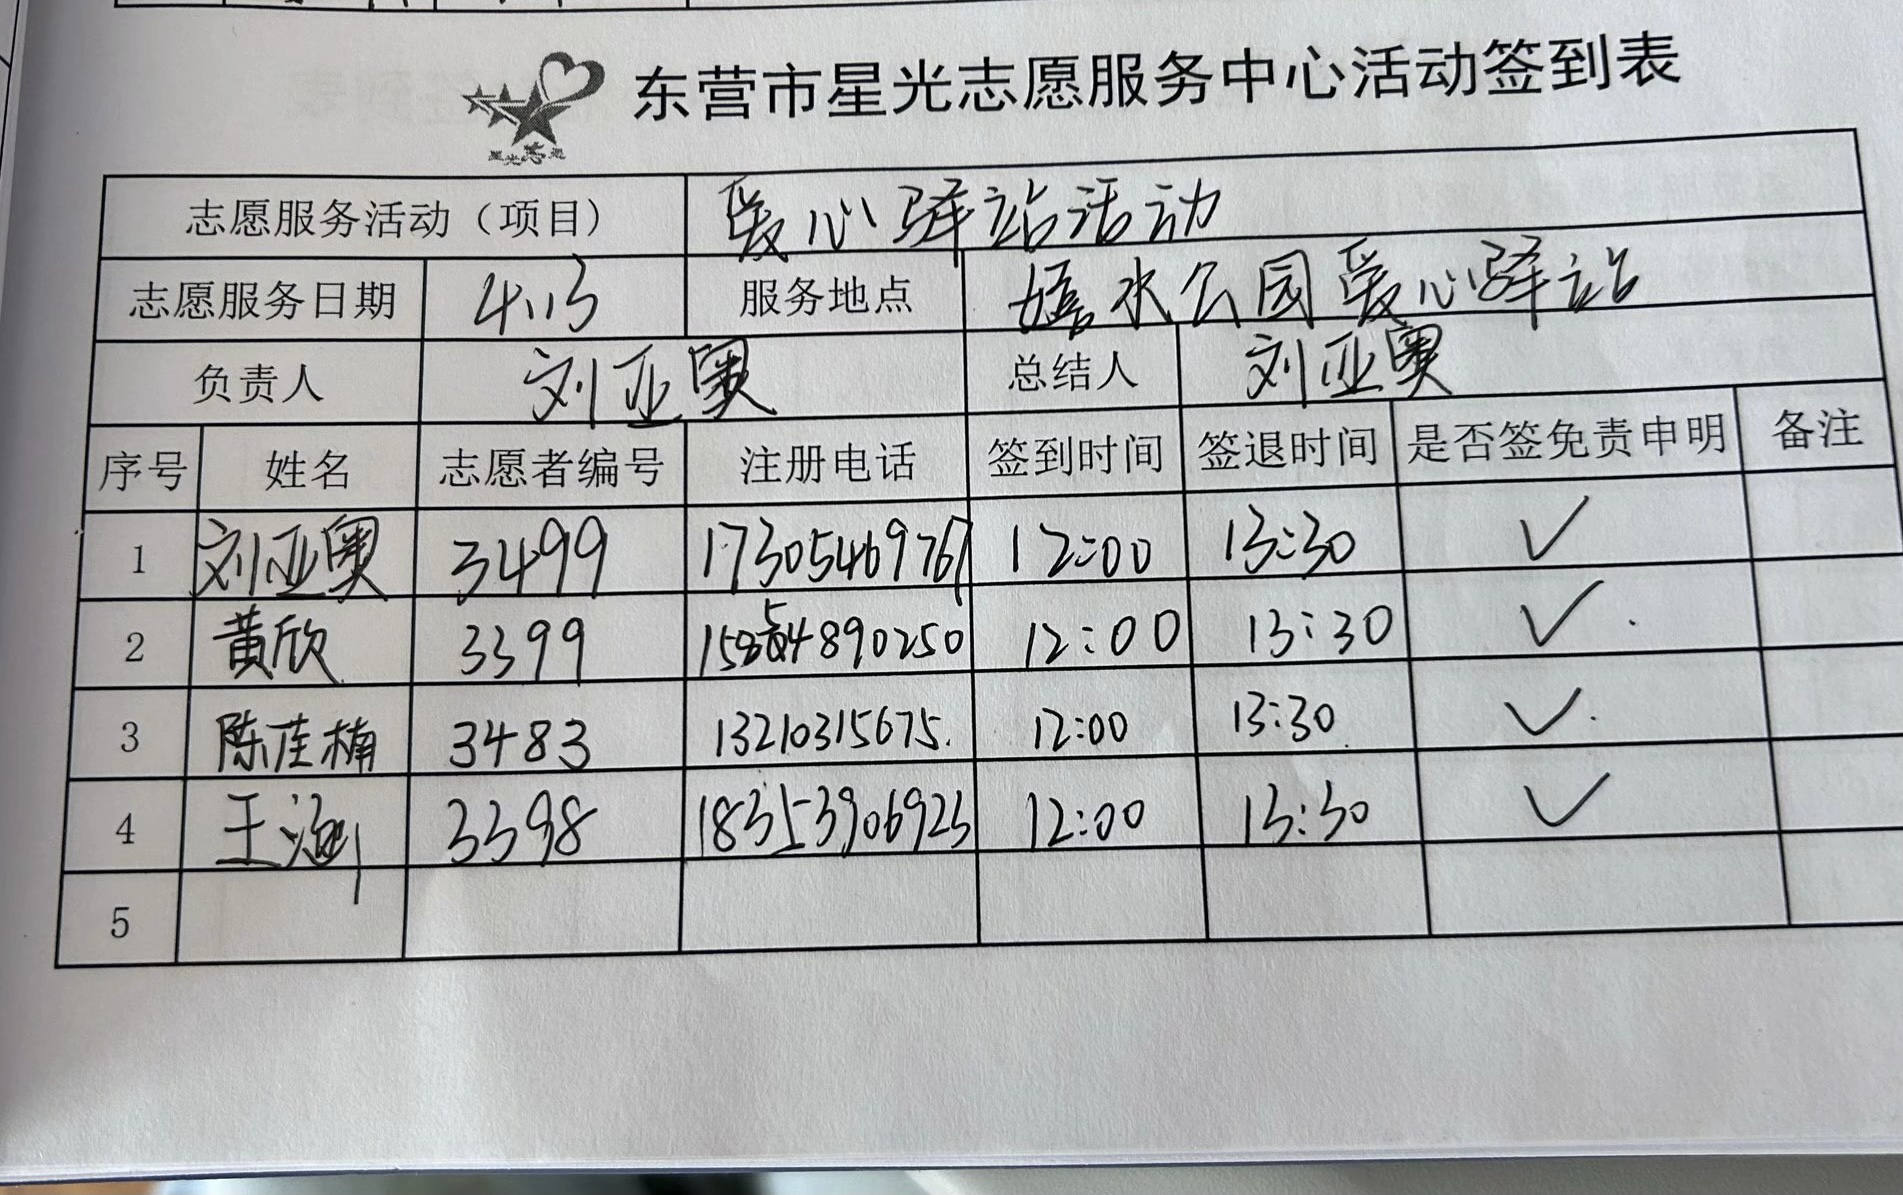 东营市星光志愿服务中心活动签到表
星光志愿
志愿服务活动（项目） 爱心驿站活动
志愿服务日期 4.13 服务地点 嬉水公园爱心驿站
负责人 刘亚奥 总结人 刘亚奥
序号 姓名 志愿者编号 注册电话 签到时间 签退时间 是否签免责申明 备注
1 刘亚奥 3499 17305469767 12:00 13:30 ✓
2 黄欣 3399 12:00 13:30 ✓
3 陈佳楠 3483 13210315675. 12:00 13:30 ✓
4 王涵 3398 18353906923 12:00 13:30 ✓
5